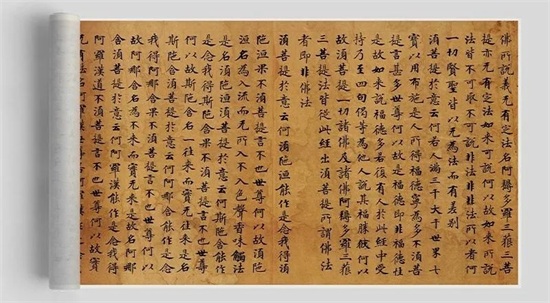 佛所說義无有定法名阿耨多羅三藐三菩
提亦无有定法如来可說何以故如来所說
法皆不可取不可說非法非非法所以者何
一切賢聖皆以无為法而有差别
湏菩提於意云何若人滿三千大千世界七
寶以用布施是人所得福德寧為多不湏菩
提言甚多世尊何以故是福德即非福德性
是故如来說福德多若復有人於此經中受
持乃至四句偈等為他人說其福勝彼何以
故湏菩提一切諸佛及諸佛阿耨多羅三藐
三菩提法皆從此經出湏菩提所謂佛法
者即非佛法
湏菩提於意云何湏陁洹能作是念我得湏
陁洹果不湏菩提言不也世尊何以故湏陁
洹名為入流而无所入不入色聲香味觸法
是名湏陁洹湏菩提於意云何斯陁含能作
是念我得斯陁含果不湏菩提言不也世尊
何以故斯陁含名一往来而實无往来是名
斯陁含湏菩提於意云何阿那含能作是念
我得阿那含果不湏菩提言不也世尊何以
故阿那含名為不来而實无来是故名阿那
含湏菩提於意云何阿羅漢能作是念我得
阿羅漢道不湏菩提言不也世尊何以故實
无有法名阿羅漢